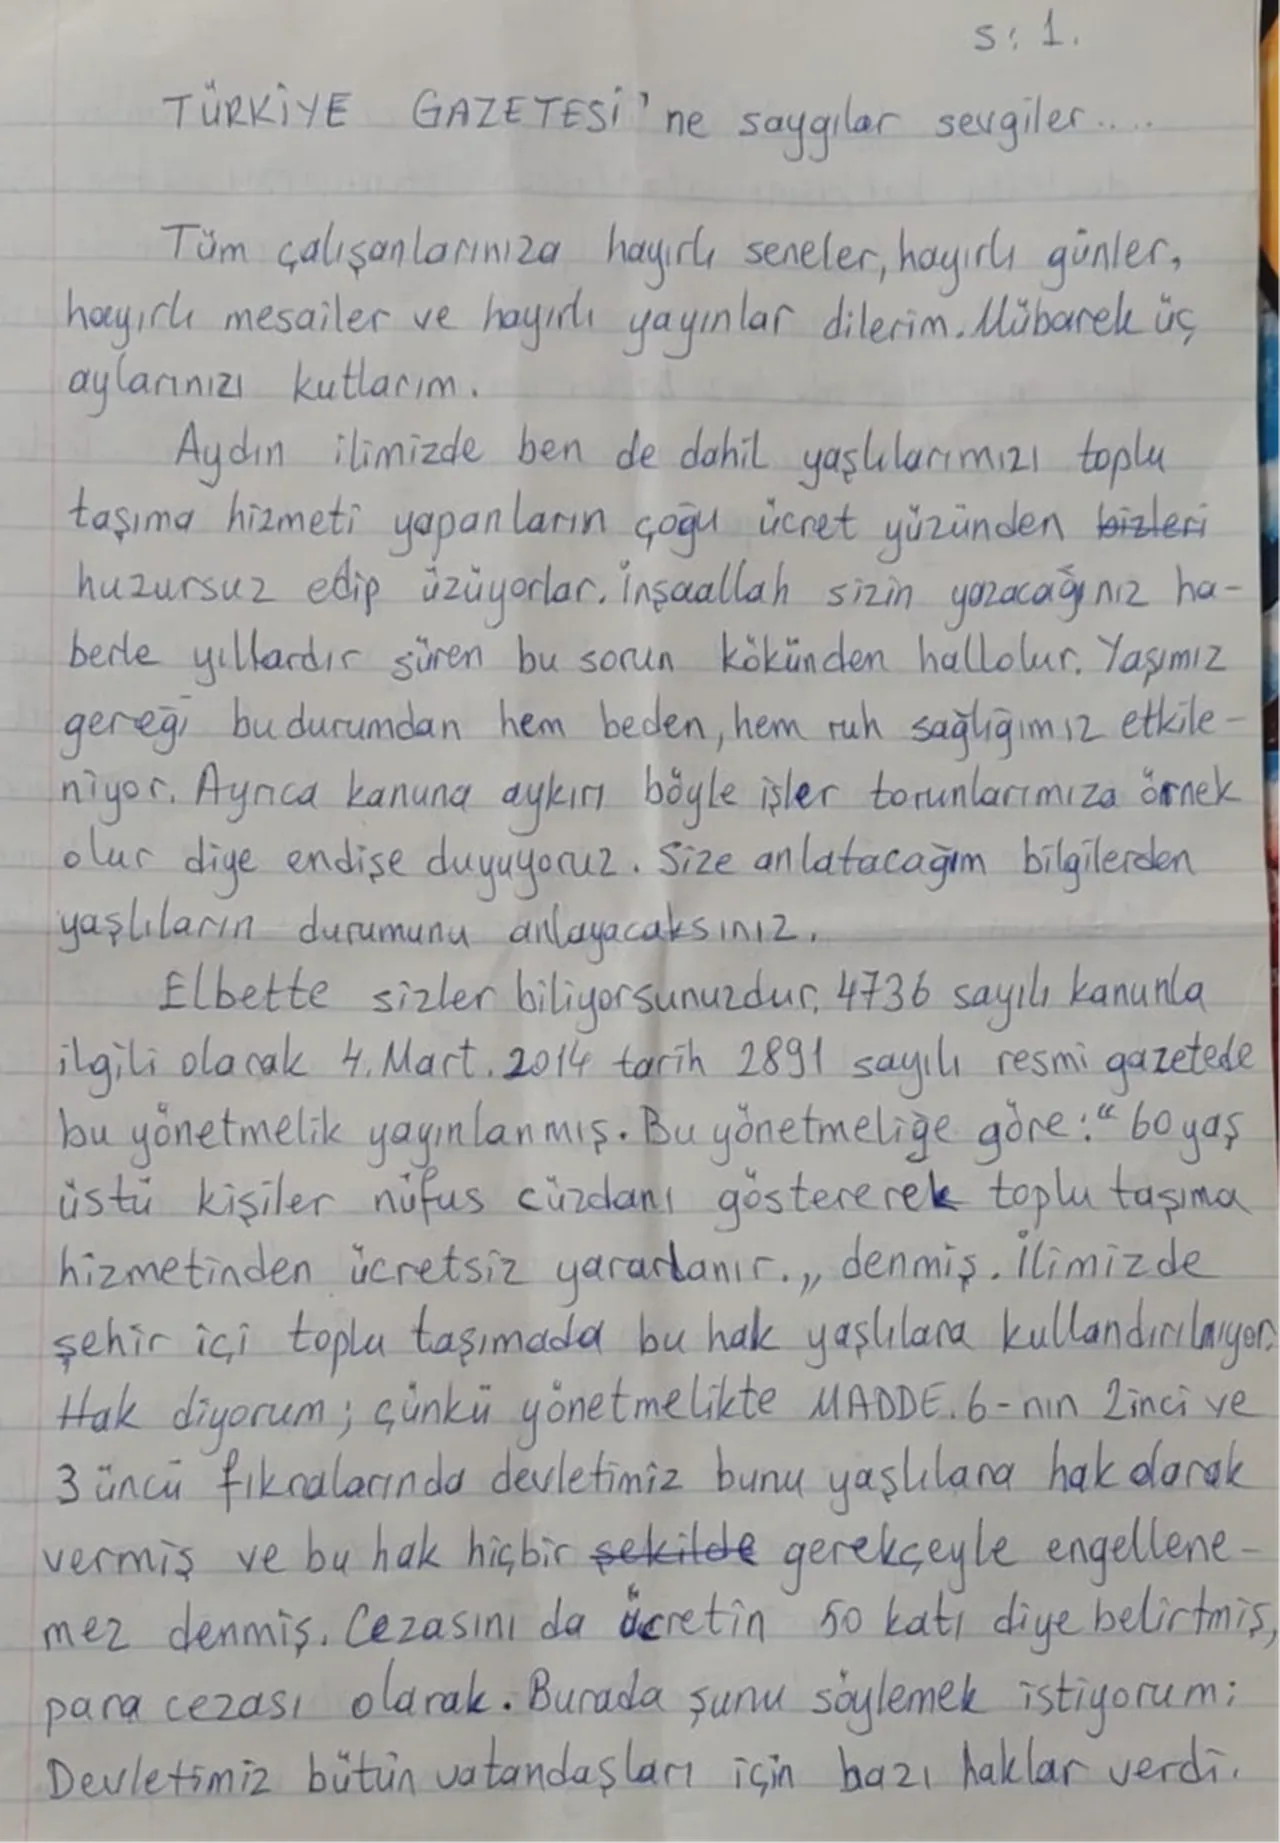 s: 1.
TÜRKİYE GAZETESİ'ne saygılar sevgiler....
Tüm çalışanlarınıza hayırlı seneler, hayırlı günler,
hayırlı mesailer ve hayırlı yayınlar dilerim. Mübarek üç
aylarınızı kutlarım.
Aydın ilimizde ben de dahil yaşlılarımızı toplu
taşıma hizmeti yapanların çoğu ücret yüzünden bizleri
huzursuz edip üzüyorlar. İnşaallah sizin yazacağınız ha-
berle yıllardır süren bu sorun kökünden hallolur. Yaşımız
gereği bu durumdan hem beden, hem ruh sağlığımız etkile-
niyor. Ayrıca kanuna aykırı böyle işler torunlarımıza örnek
olur diye endişe duyuyoruz. Size anlatacağım bilgilerden
yaşlıların durumunu anlayacaksınız.
Elbette sizler biliyorsunuzdur, 4736 sayılı kanunla
ilgili olarak 4. Mart. 2014 tarih 2891 sayılı resmi gazetede
bu yönetmelik yayınlanmış. Bu yönetmeliğe göre: “60 yaş
üstü kişiler nüfus cüzdanı göstererek toplu taşıma
hizmetinden ücretsiz yararlanır.„ denmiş. İlimizde
şehir içi toplu taşımada bu hak yaşlılara kullandırılmıyor.
Hak diyorum; çünkü yönetmelikte MADDE. 6-nın 2inci ve
3 üncü fıkralarında devletimiz bunu yaşlılara hak olarak
vermiş ve bu hak hiçbir şekilde gerekçeyle engellene-
mez denmiş. Cezasını da ücretin 50 katı diye belirtmiş,
para cezası olarak. Burada şunu söylemek istiyorum:
Devletimiz bütün vatandaşları için bazı haklar verdi.